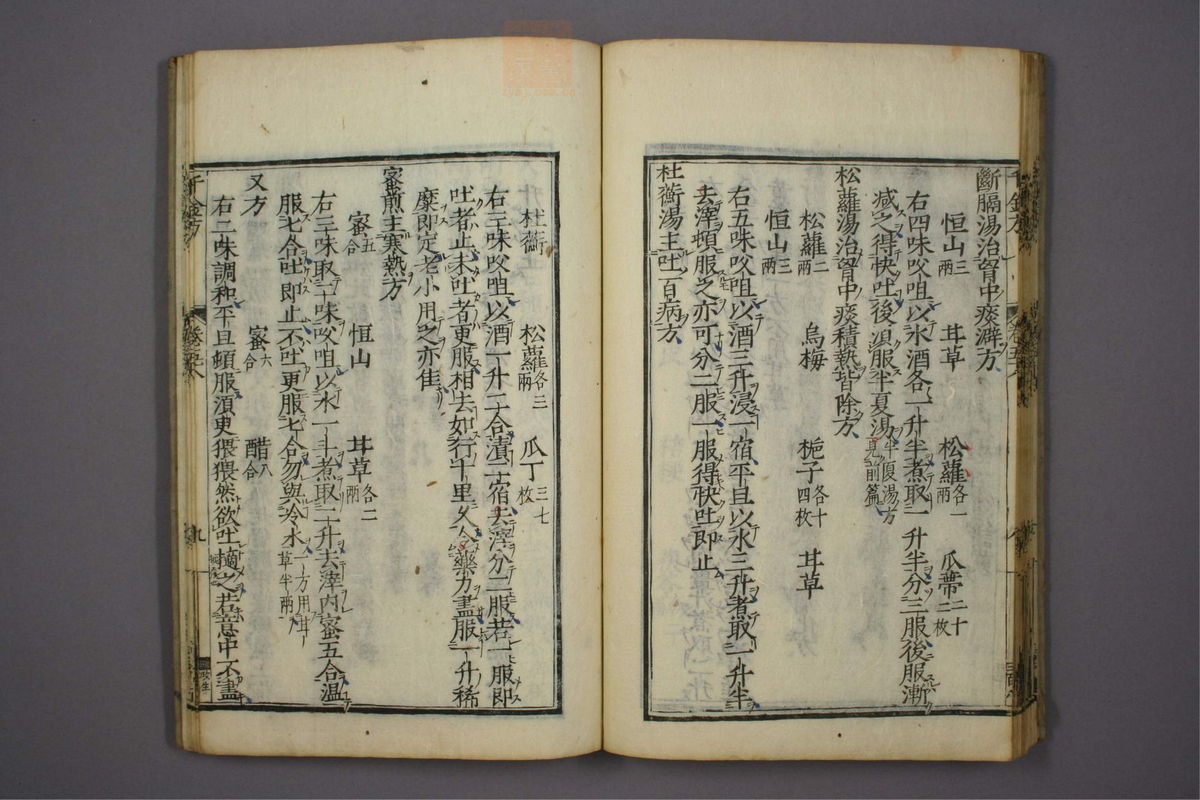 斷膈湯治胷中痰澼方
恒山三兩 甘草 松蘿各一兩 瓜蔕二十二枚
右四味㕮咀以水酒各一升半煮取一升半分三服後服漸
减之得快吐後須服半夏湯半夏湯方見前篇
松蘿湯治胷中痰積熱皆除方
松蘿二兩 烏梅 梔子各十四枚 甘草
恒山三兩
右五味㕮咀以酒三升浸一宿平旦以水三升煮取一升半
去滓頓服之亦可分二服一服得快吐即止
杜蘅湯主吐百病方
杜蘅 松蘿各三兩 瓜丁三七枚
右三味㕮咀以酒一升二合漬一宿去滓分二服若一服即
吐者止未吐者更服相去如行十里久令藥力盡服一升稀
糜即定老小用之亦佳
蜜煎主寒熱方
蜜五合 恒山 甘草各二兩
右三味取二味㕮咀以水一斗煮取二升去滓内蜜五合温
服七合吐即止不吐更服七合勿與冷水一方用甘草半兩
又方
蜜六合 醋八合
右二味調和平旦頓服須臾猥猥然欲吐擿之若意中不盡
千金方
九